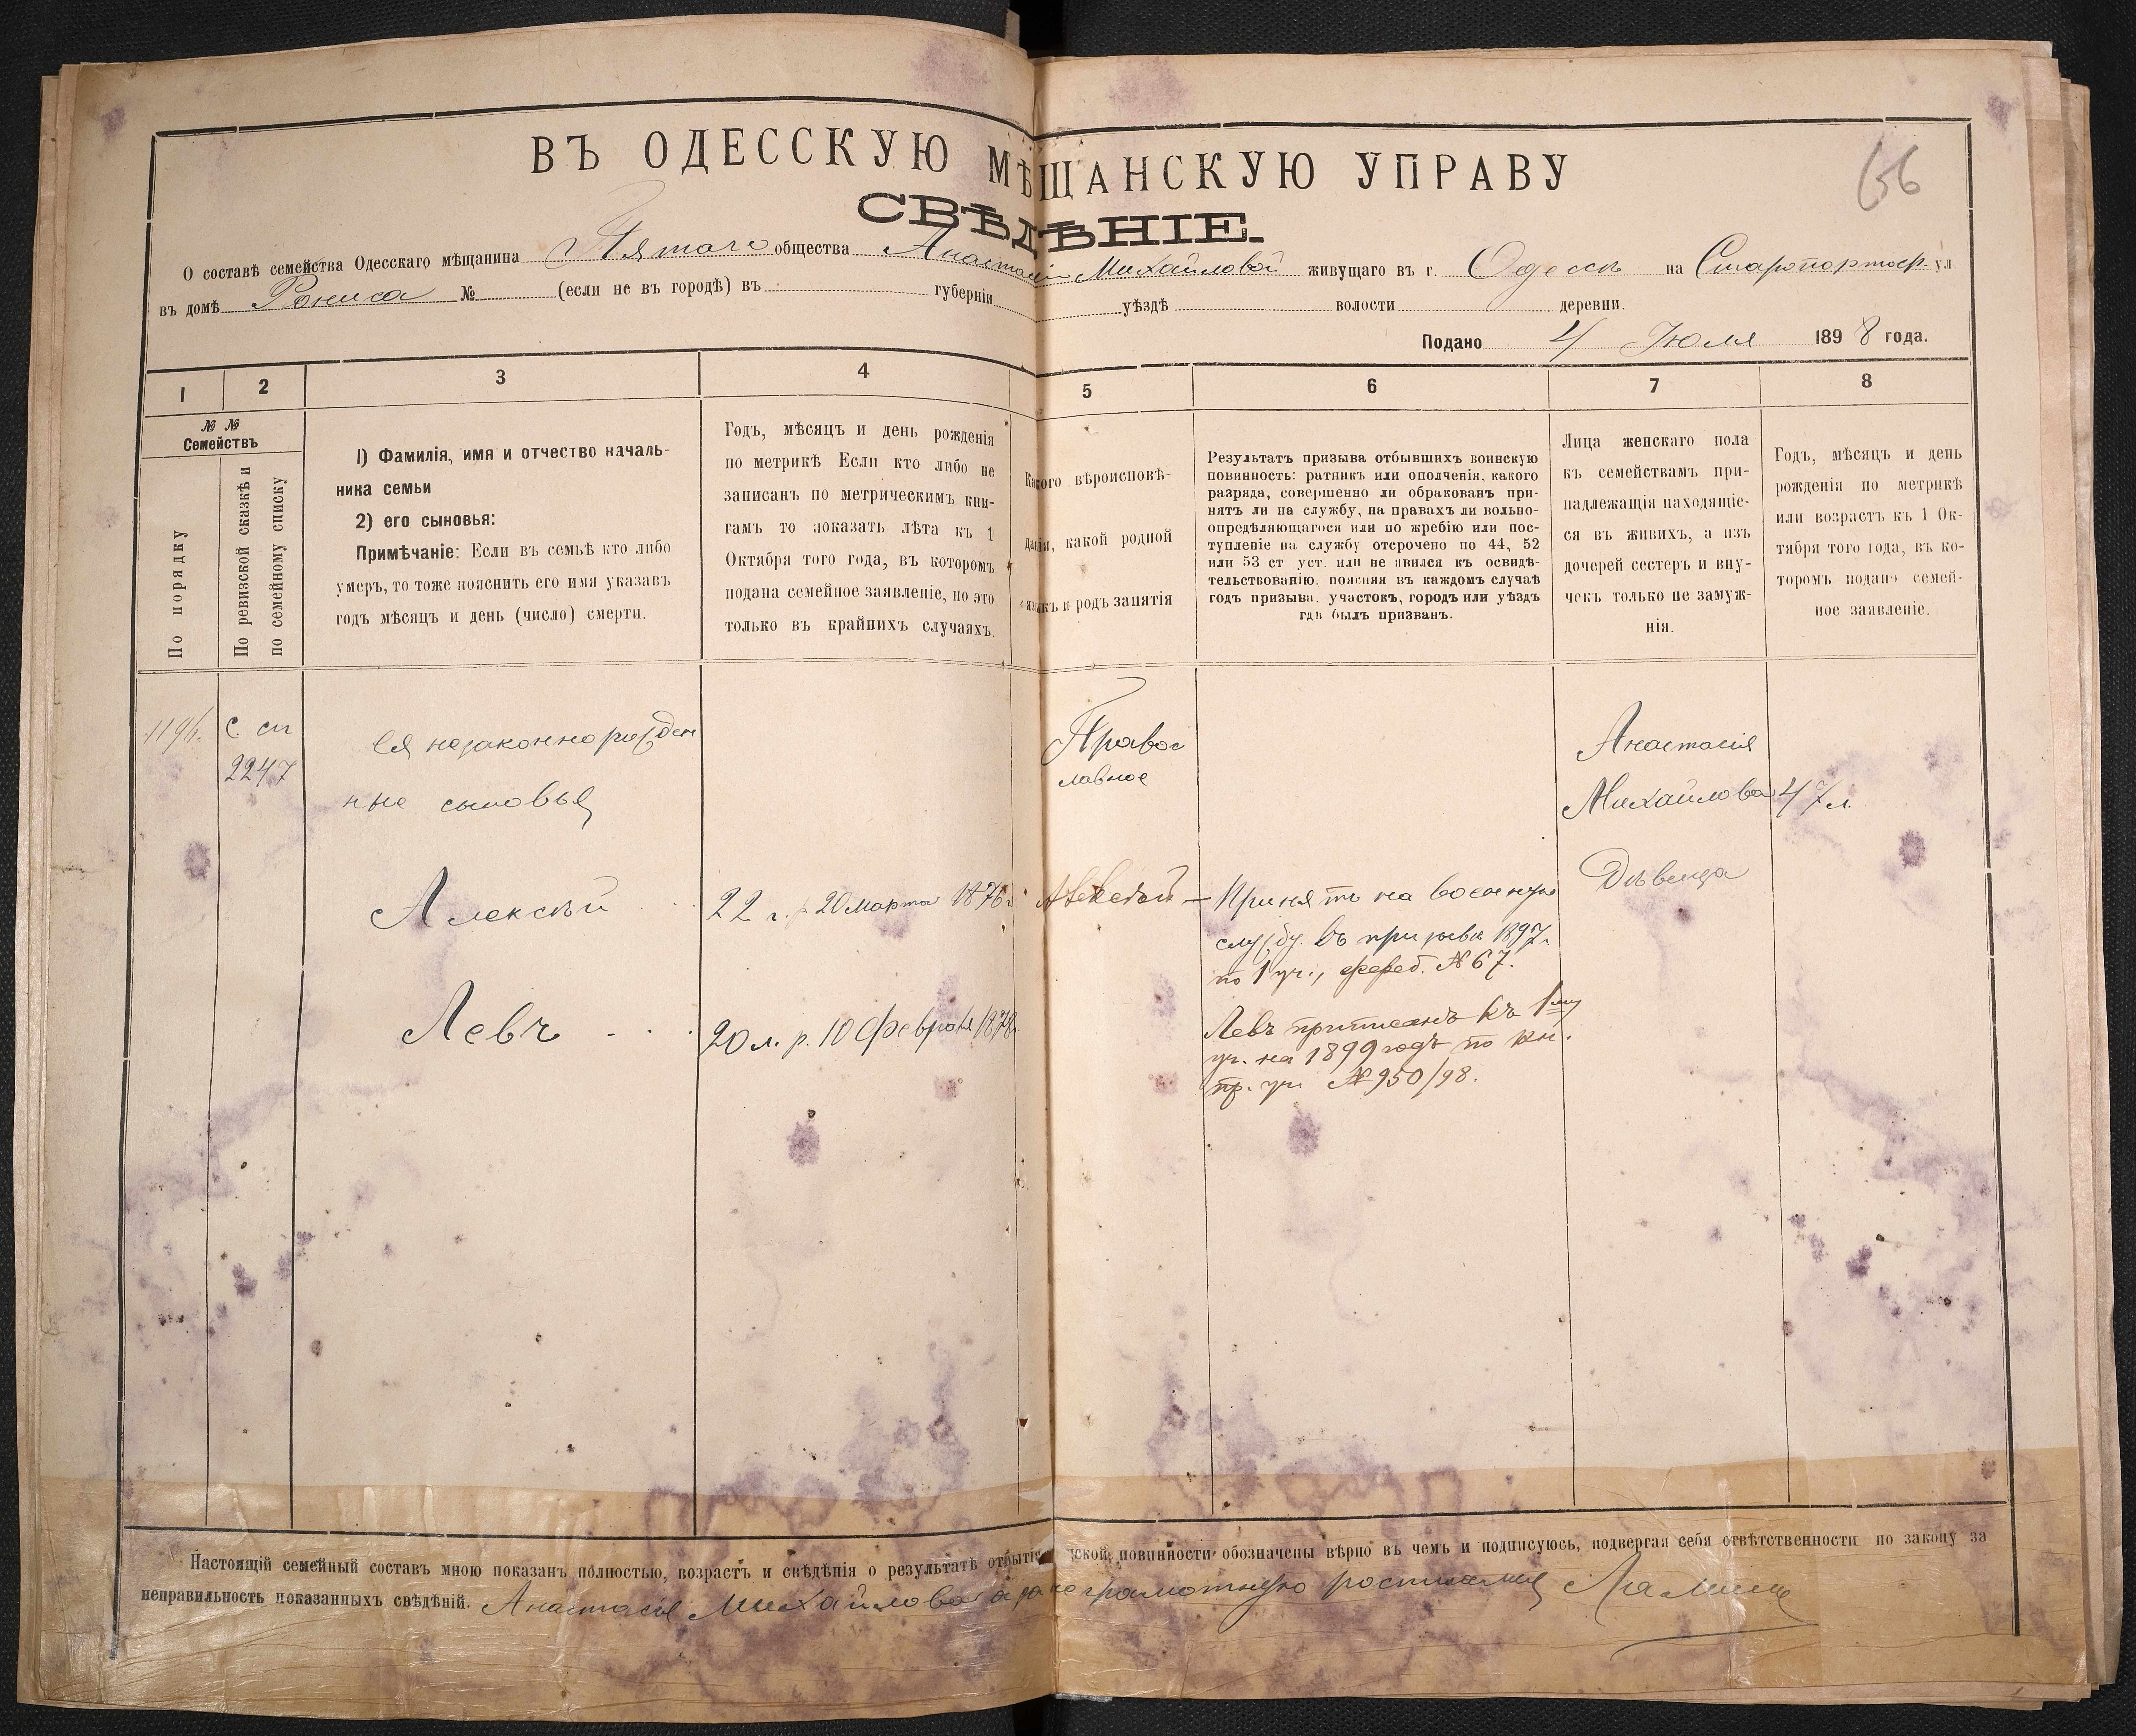 66
ВЪ ОДЕССКУЮ МѢЩАНСКУЮ УПРАВУ
СВѢДѢНІЕ.
О составѣ семейства Одесскаго мѣщанина Пятаго общества Анастасіи Михайловой живущаго въ г. Одессѣ на Старопортофр. ул
въ домѣ № (если не въ городѣ) въ губерніи уѣздѣ волости деревни.
Подано 4 Юля 1898 года.
1 2 3 4 5 6 7 8
№ №
Семействъ
По порядку
По ревизской сказкѣ и
по семейному списку
1) Фамилія, имя и отчество началь-
ника семьи
2) его сыновья:
Примѣчаніе: Если въ семьѣ кто либо
умеръ, то тоже пояснить его имя указавъ
годъ мѣсяцъ и день (число) смерти.
Годъ, мѣсяцъ и день рожденія
по метрикѣ Если кто либо не
записанъ по метрическимъ кни-
гамъ то показать лѣта къ 1
Октября того года, въ которомъ
подана семейное заявленіе, но это
только въ крайнихъ случаяхъ.
Какого вѣроисповѣ-
данія, какой родной
языкъ и родъ занятія
Результатъ призыва отбывшихъ воинскую
повинность: ратникъ или ополченія, какого
разряда, совершенно ли обракованъ при-
нятъ ли на службу, на правахъ ли вольно-
опредѣляющагося или по жребію или пос-
тупленіе на службу отсрочено по 44, 52
или 53 ст уст. или не явился къ освидѣ-
тельствованію, поясняя въ каждомъ случаѣ
годъ призыва, участокъ, городъ или уѣздъ
гдѣ былъ призванъ.
Лица женскаго пола
къ семействамъ при-
надлежащія находящіе-
ся въ живихъ, а изъ
дочерей сестеръ и вну-
чекъ только не замуж-
нія.
Годъ, мѣсяцъ и день
рожденія по метрикѣ
или возрастъ къ 1 Ок-
тября того года, въ ко-
торомъ подано семей-
ное заявленіе.
1196.
С. сп
2247
Ея незаконнорожден
ные сыновья
Православное
Правос
лавное
Анастасія
Михайлова 47 л.
Дѣвица
Алексѣй 22 г. р 20 Марта 1876 г. Алексѣй — Принятъ на военную
службу въ призывъ 1897 г.
по 1 уч., жереб. № 67.
Левъ 20 л. р. 10 февраля 1878 г.
Левъ приписанъ къ 1му
уч. на 1899 годъ по кн.
пр. уч. № 950/98.
Настоящій семейный составъ мною показанъ полностью, возрастъ и свѣдѣнія о результатѣ отбытія воинской повинности обозначены вѣрно въ чемъ и подписуюсь, подвергая себя отвѣтственности по закону за
неправильность показанныхъ свѣдѣній. Анастасія Михайлова а за неграмотную росписался